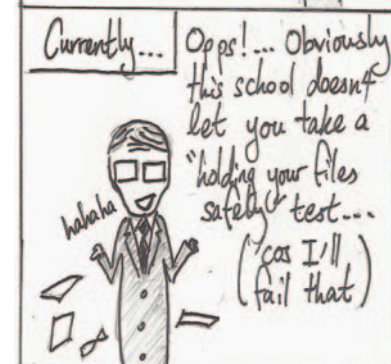 Currently...
Opps!... Obviously
this school doesn't
let you take a
"holding your files
safely" test...
('cos I'll
fail that)
hahaha